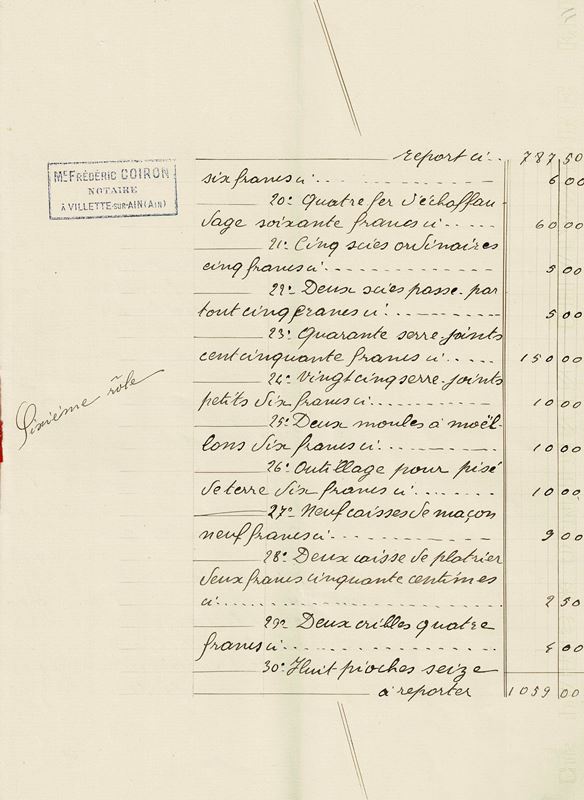 report ci... 787 50
Me FRÉDÉRIC GOIRON
NOTAIRE
À VILLETTE-SUR-AIN (AIN)
six francs ci............... 6 00
20° Quatre fer d'échaffau-
dage soixante francs ci..... 60 00
21° Cinq scies ordinaires
cinq francs ci............... 5 00
22° Deux scies passe-par
tout cinq francs ci........... 5 00
23° Quarante serre-joints
cent cinquante francs ci..... 150 00
24° Vingt cinq serre-joints
petits dix francs ci........... 10 00
Sixième rôle
25° Deux moules à moël-
lons dix francs ci........... 10 00
26° Outillage pour pisé
de terre dix francs ci....... 10 00
27° Neuf caisses de maçon
neuf francs ci............... 9 00
28° Deux caisse de platrier
deux francs cinquante centimes
ci........................... 2 50
29° Deux crilles quatre
francs ci................... 4 00
30° Huit pioches seize
à reporter 1059 00